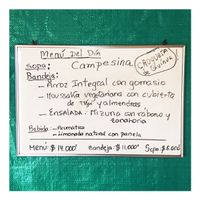 Menú Del Día
Sopa: Campesina
Bandeja:
- Arroz Integral con gomasio
- Moussaka vegetariana con cubierta
de y almendras
- Ensalada: Mizuna con rábano y
zanahoria
Bebida: - Aromatica
- Limonada natural con panela
Menú $14.000 Bandeja: $11.000 Sopa $6.000